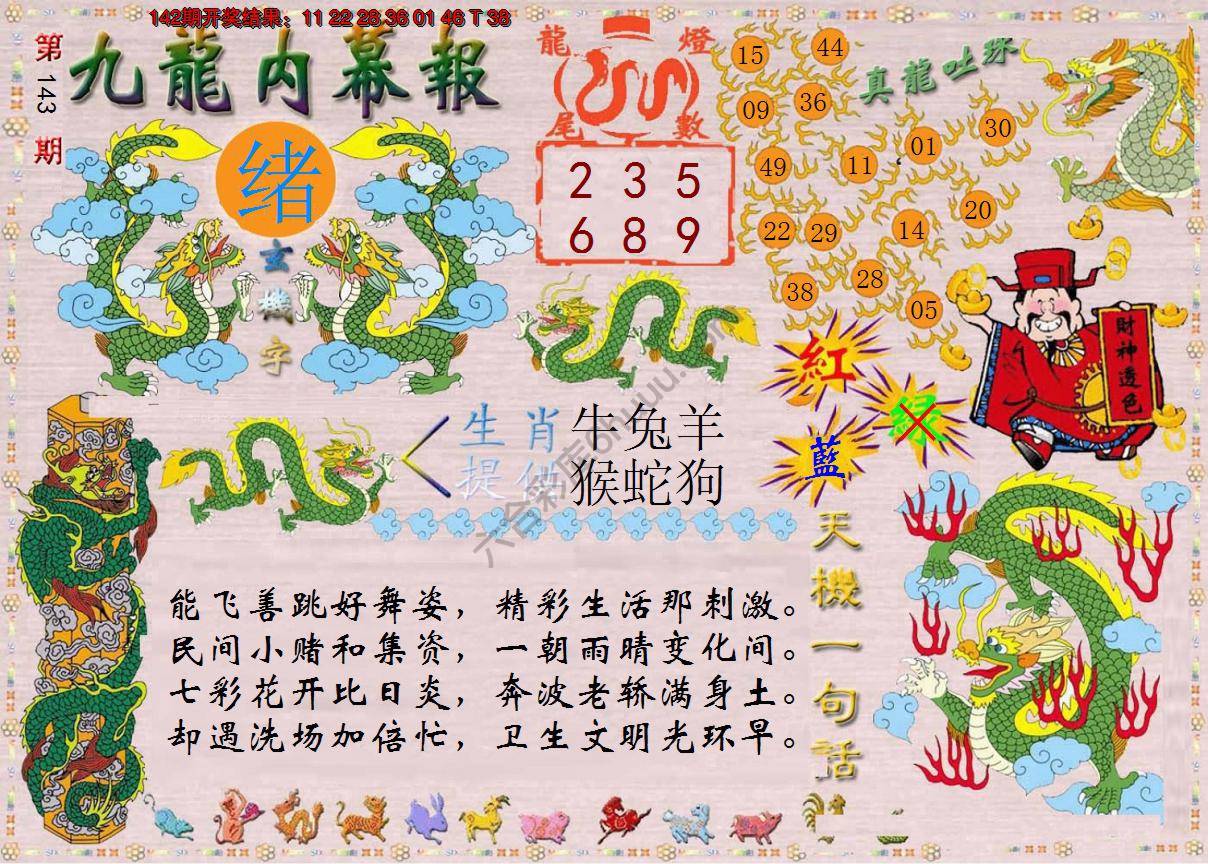 142期开奖结果：11 22 28 36 01 46 T 38
第143期
九龍内幕報
绪
玄機字
龍燈尾數
2 3 5
6 8 9
真龍吐珠
15 44
09 36
49 11 01 30
22 29 14 20
38 28 05
財神透色
紅
綠
藍
生肖 牛兔羊
提供 猴蛇狗
天機一句話
能飞善跳好舞姿，精彩生活那刺激。
民间小赌和集资，一朝雨晴变化间。
七彩花开比日炎，奔波老轿满身土。
却遇洗场加倍忙，卫生文明光环早。